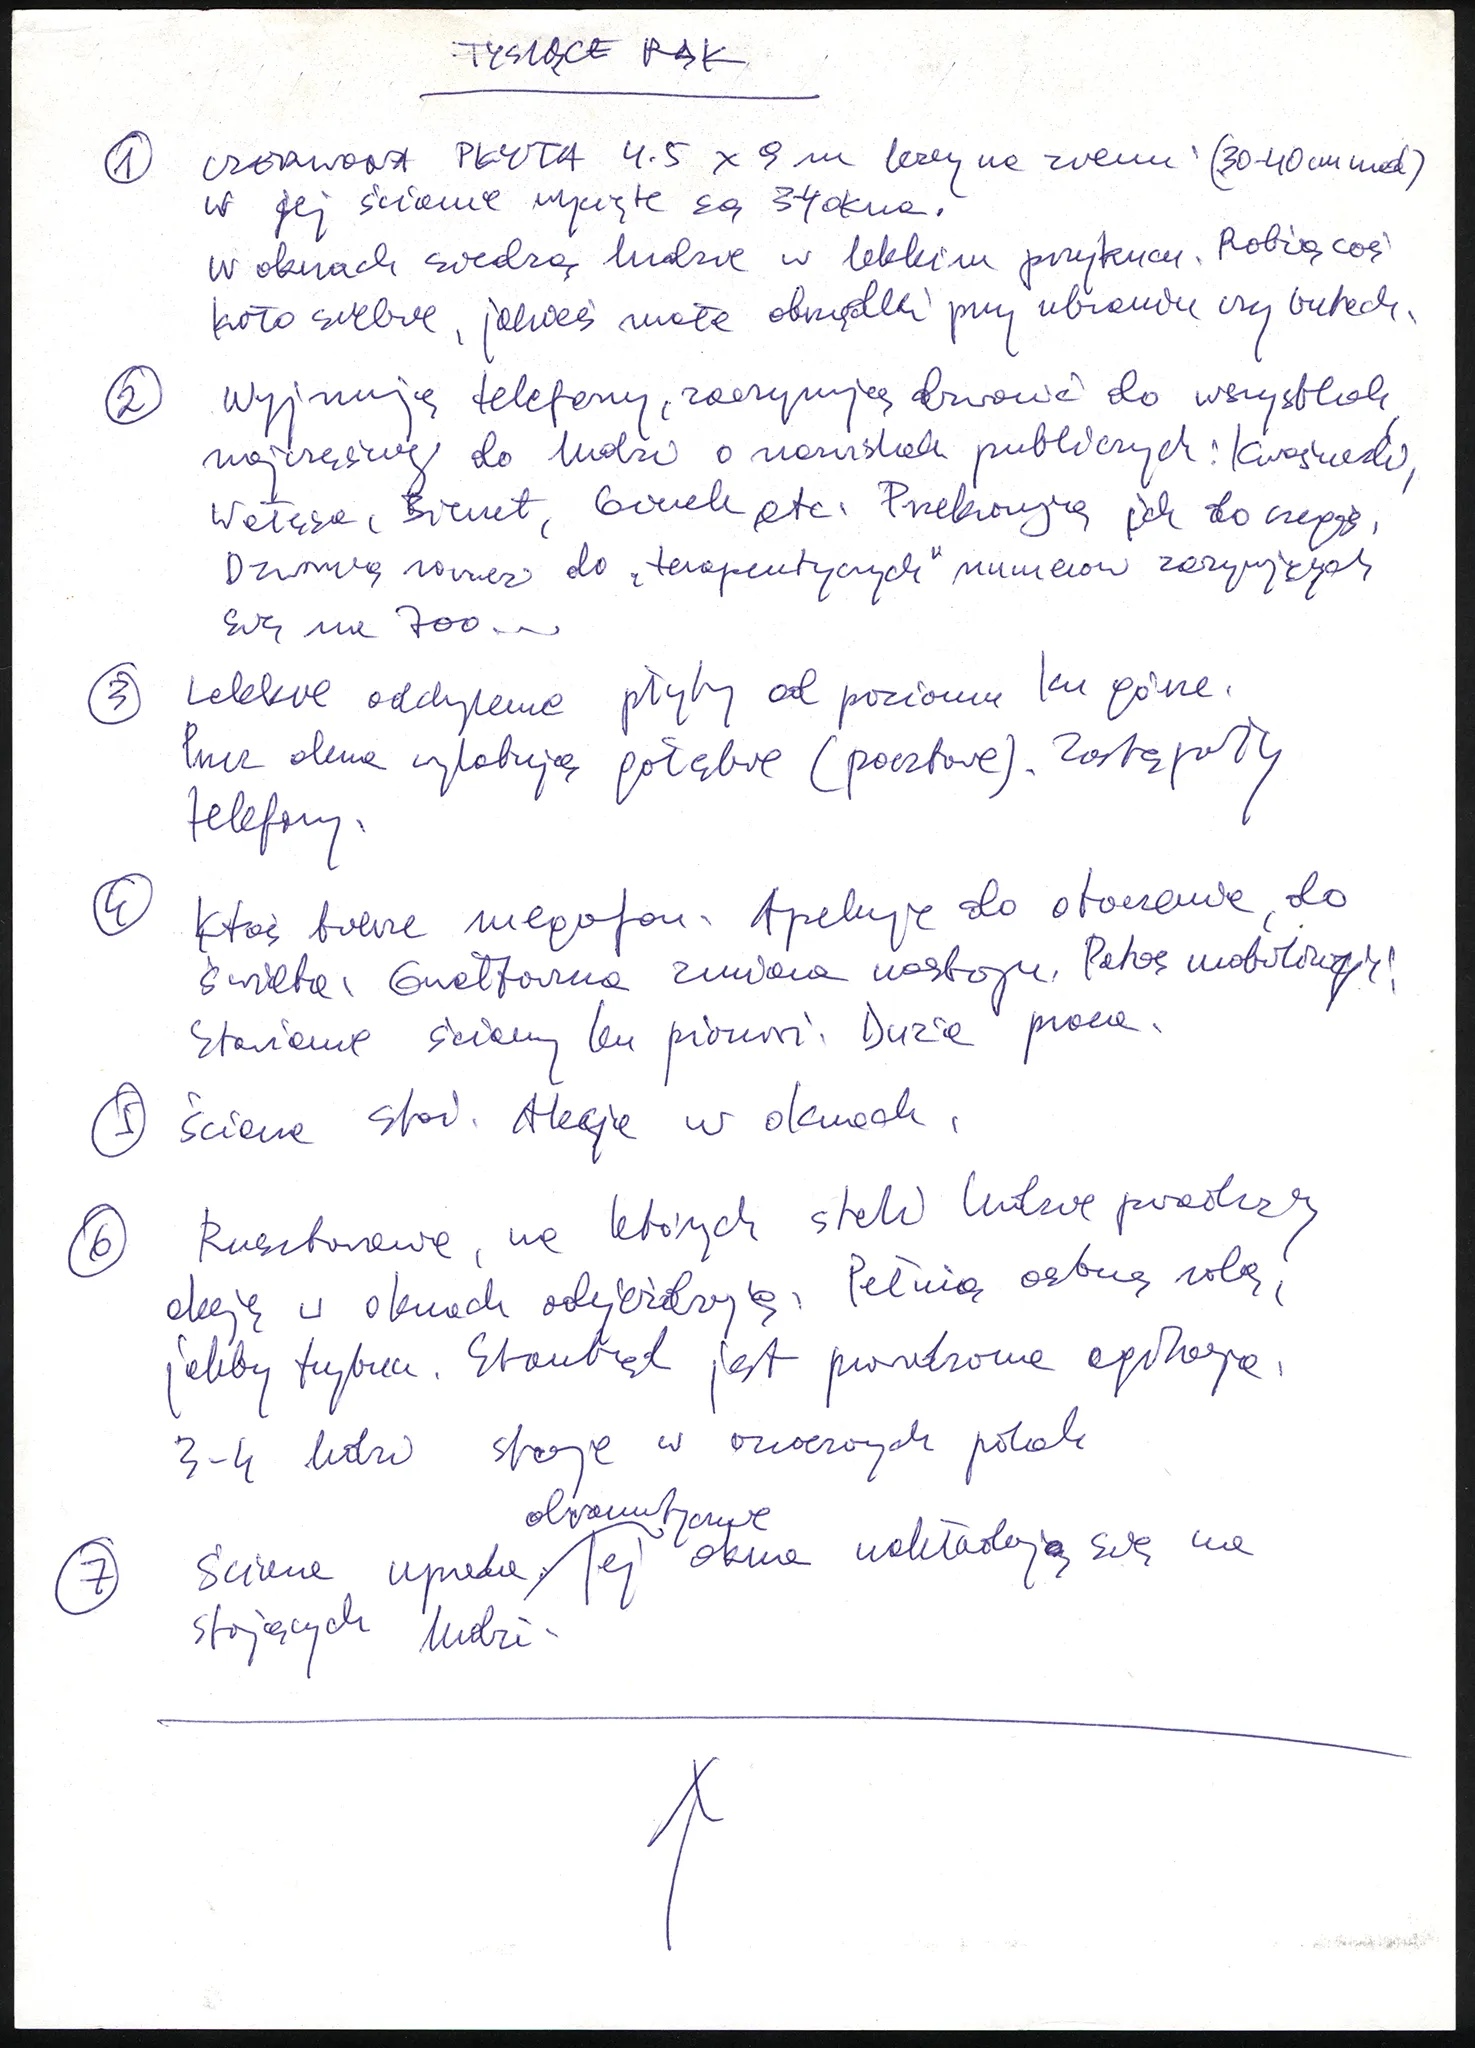 TYSIĄCE RĄK
1 CZERWONA PŁYTA 4.5 x 9 m leży na ziemi (30-40 cm nad)
w jej ścianie wycięte są 34 okna.
W oknach siedzą ludzie w lekkim przykucu. Robią coś
koło siebie, jakieś małe obrządki przy ubraniu czy butach.
2 Wyjmują telefony, zaczynają dzwonić do wszystkich,
najczęściej do ludzi o nazwiskach publicznych: Kwaśniewski,
Wałęsa, Bierut, Gierek etc. Przekonują ich do czegoś.
Dzwonią również do „terapeutycznych" numerów zaczynających
się na 700...
3 Lekkie odchylenie płyty od poziomu ku górze.
Przez okna wylatują gołębie (pocztowe). Zastąpiły
telefony.
4 Ktoś bierze megafon. Apeluje do otoczenia, do
świata. Gwałtowna zmiana nastroju. Patos mobilizacji!
Stawianie ściany ku pionowi. Duża praca.
5 Ściana stoi. Akcja w oknach.
6 Rusztowanie, na których stali ludzie prowadzący
akcję w oknach odjeżdżają. Pełnią osobną rolę,
jakby trybun. Stamtąd jest prowadzona agitacja.
3-4 ludzi stoje w znaczonych polach
7 Ściana upada. Jej dramatycznie okna nakładają się na
stojących ludzi.